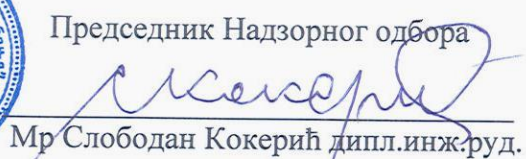 Председник Надзорног одбора
Мр Слободан Кокерић дипл.инж.руд.